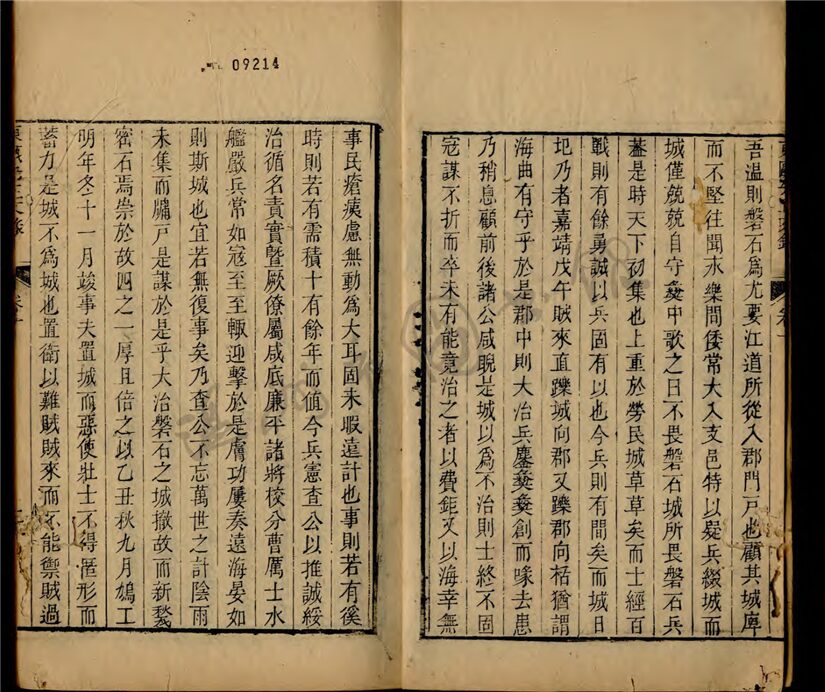 09214
吾溫則磐石為尤要江道所從入郡門戸也顧其城庳
而不堅往聞永樂間倭常大入支邑特以疑兵綴城而
城僅兢兢自守夔中歌之曰不畏磐石城所畏磐石兵
葢是時天下初集也上重於勞民城草草矣而士經百
戰則有餘勇誠以兵固有以也今兵則有間矣而城日
圮乃者嘉靖戊午賊來直躒城向郡又躒郡向栝猶謂
海曲有守乎於是郡中則大治兵鏖夔夔創而喙去患
乃稍息顧前後諸公咸睨是城以為不治則士終不固
冦謀不折而卒未有能竟治之者以費鉅又以海幸無
事民瘡痍慮無動為大耳固未暇遠計也事則若有徯
時則若有需積十有餘年而值今兵憲查公以推誠綏
治循名責實暨厥僚屬咸底廉平諸將校分曹厲士水
艦嚴兵常如寇至至輙迎擊於是膚功屢奏遠海晏如
則斯城也宜若無復事矣乃查公不忘萬世之計陰雨
未集而牖戸是謀於是乎大治磐石之城撤故而新甃
密石焉崇於故四之一厚且倍之以乙丑秋九月鳩工
明年冬十一月竣事夫置城而惡使壯士不得伍形而
蓄力是城不為城也置衛以難賊賊來而不能禦賊過